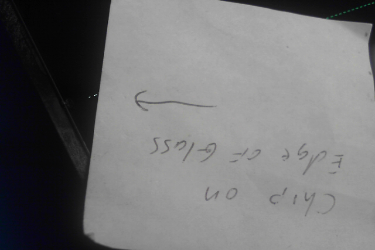 Chip on
Edge of Glass